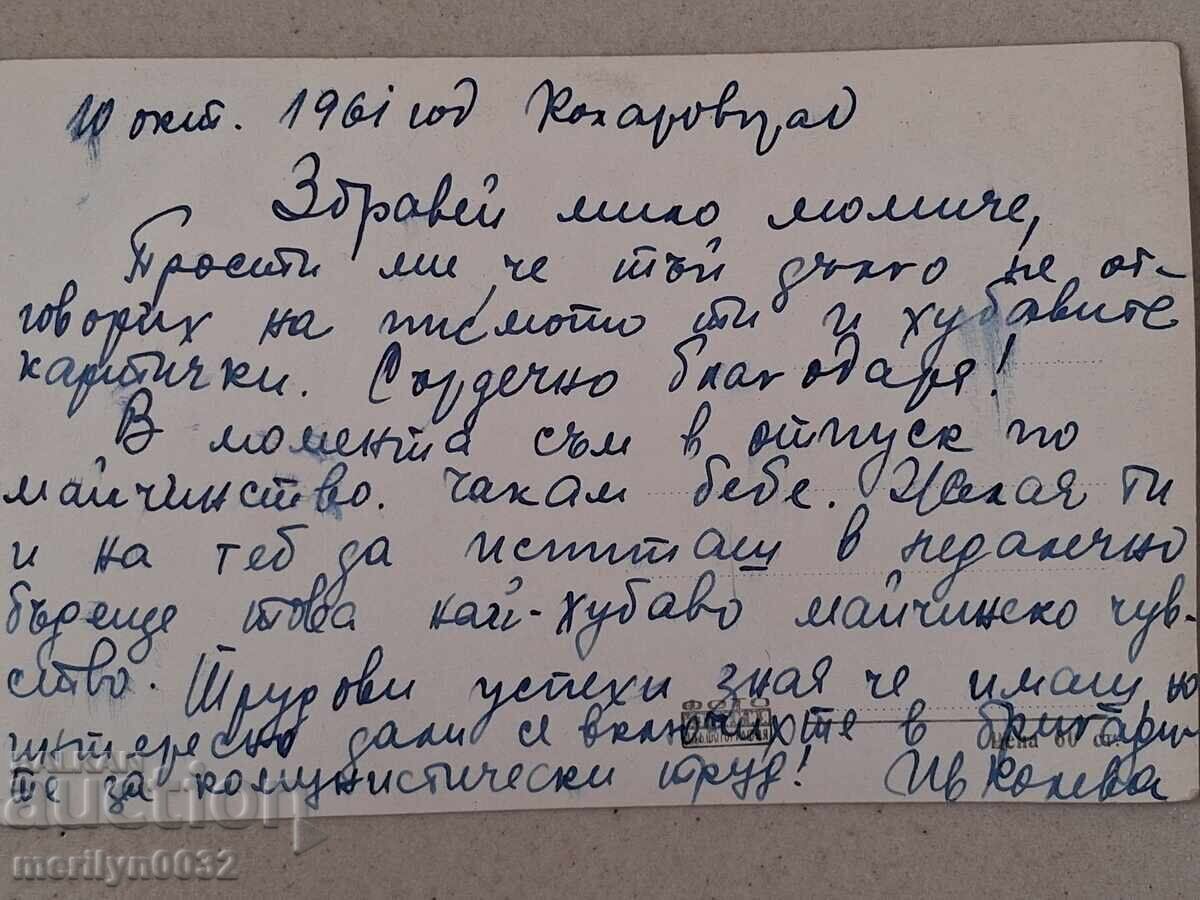 10 окт. 1961 год Коларовград
Здравей мило момиче,
Прости ми, че тъй дълго не от-
говорих на писмото ти и хубавите
картички. Сърдечно благодаря!
В момента съм в отпуск по
майчинство. Чакам бебе. Желая ти
и на теб да изпиташ в недалечно
бъдеще това най-хубаво майчинско чув-
ство. Трудови успехи зная че имаш, но
интересно дали се включихте в бригади-
те за комунистически труд! Ив Колева
Цена 60 ст.
BALKAN
auction
merilyn0032